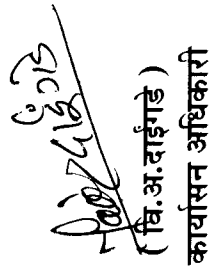 ( वि.अ.दाईगडे )
कार्यासन अधिकारी